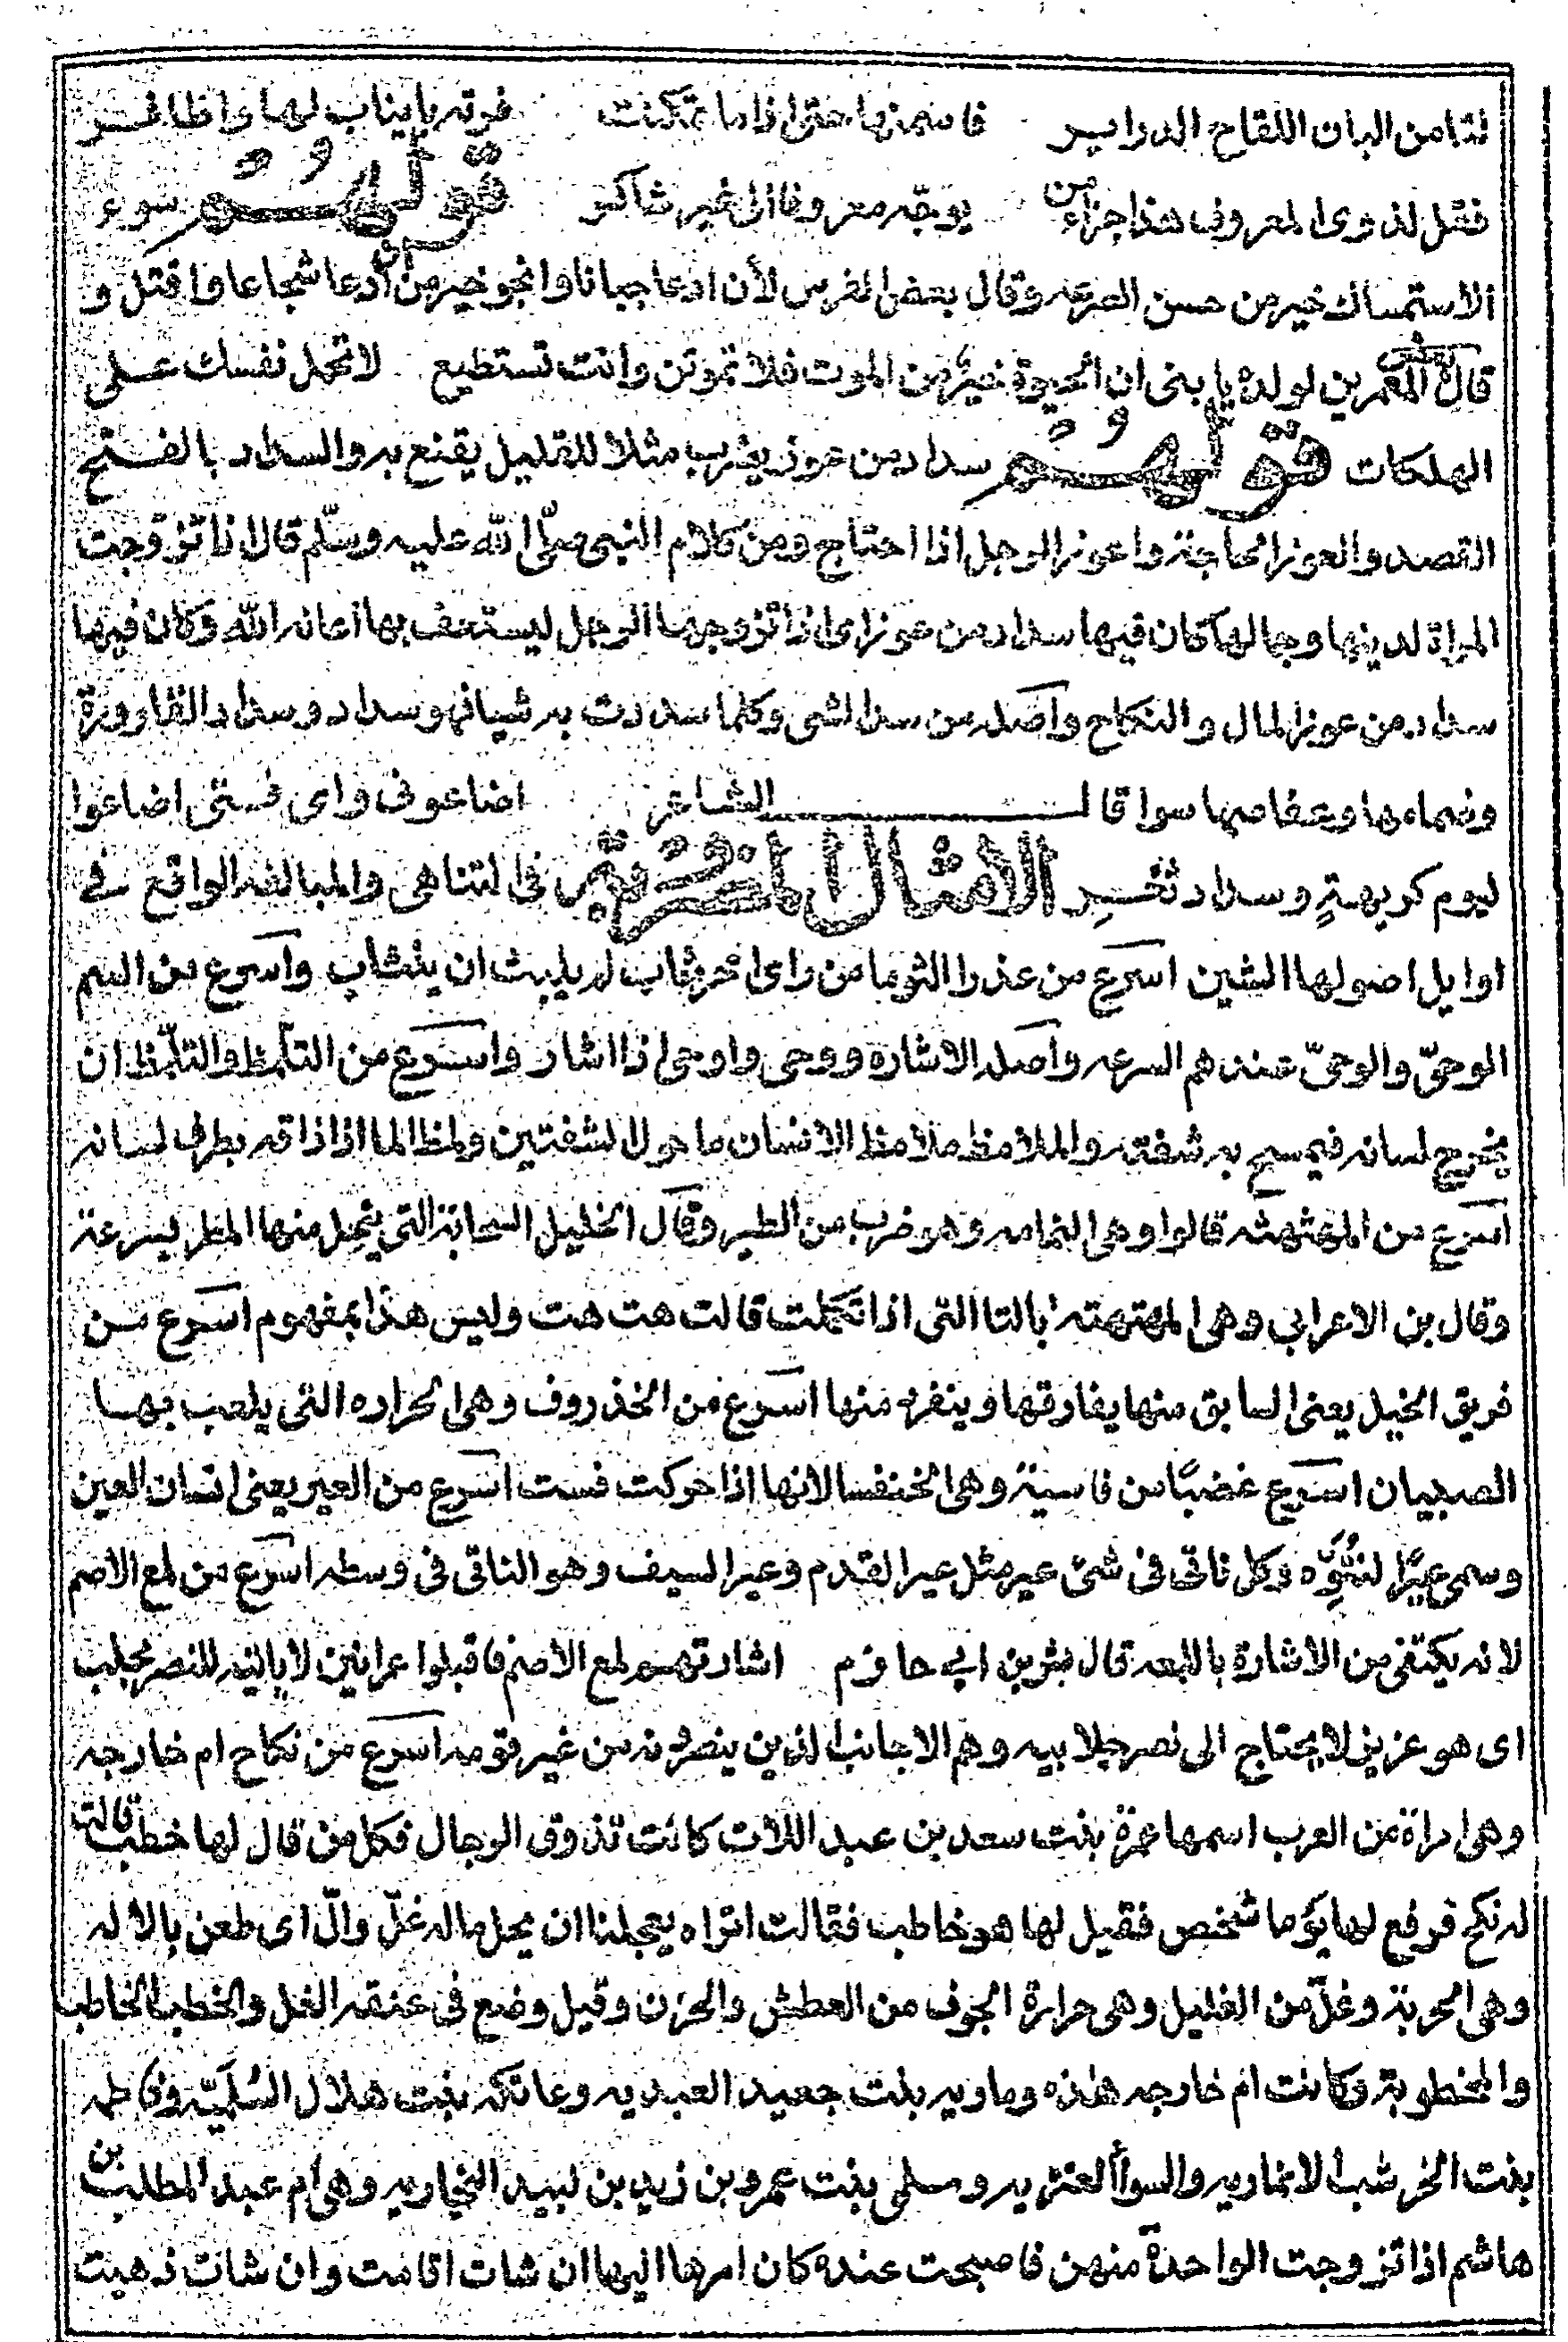 لقا من البان اللقاح الدراير فاسمنها حتى اذا ما تمكنت فرته بانياب لها واظافر
فقل لذوى المعروف هذا جزاء من يوجّه معروفا الى غير شاكر قولهُم سوء
الاستمساك خير من حسن الصرعه وقال بعض الفرس لأن ادعا جبانا وانجو خير من أن أدعا شجاعا واقتل و
قال بعض المعمرين لولده يا بنى ان الحيوة خيرٌ من الموت فلا تموتن وانت تستطيع لا تحمل نفسك على
الهلكات قولهُم سداد من عوز يضرب مثلا للقليل يقنع به والسداد بالفتح
القصد والعوز الحاجة واعوز الرجل اذا احتاج ومن كلام النبى صلّى الله عليه وسلّم قال اذا تزوّجت
المراة لدينها وجمالها كان فيها سداد من عوز اى اذا تزوجها الرجل ليستعف بها اعانه الله وكان فيها
سداد من عوز المال والنكاح وآصله من سد الشى وكلما سددت به شيا فهو سداد وسداد القارورة
وصمامها وعفاصها سوا قال الشاعر اضاعونى واى فتى اضاعوا
ليوم كريهةٍ وسداد ثغر الامثال المضروبة فى التناهى والمبالغه الواقع فى
اوايل اصولها الشين اسرع من عذرا الثوبا من راى اخر ثاب لم يلبث ان يتثاب واسرع من السم
الوحىّ والوحىّ عندهم السرعه وآصله الاشاره ووحى واوحى اذا اشار واسرع من التلمظ والتلمّظ ان
يخرج لسانه فيمسح به شفته والملامظ ملامظ الانسان ما حول الشفتين ولمظ الما اذا ذاقه بطرف لسانه
اسرع من المهثهثه قالوا وهى النمامه وهو ضرب من الطير وقال الخليل السحابة التى ينحل منها المطر بسرعة
وقال بن الاعرابى وهى المهتهته بالتا التى اذا تكلمت قالت هت هت وليس هذا بمفهوم اسرع من
فريق الخيل يعنى السابق منها يفارقها وينفرد منها اسرع من الخذروف وهى الحراره التى يلعب بها
الصبيان اسرع غضبًا من فاسية وهى الخنفسا لانها اذا حركت فست اسرع من العير يعنى انسان العين
وسمى عيرًا لنتوّه وكل ناتى فى شئ عير مثل عير القدم وعير السيف وهو الناتى فى وسطه اسرع من لمع الاصم
لانه يكتفى من الاشارة باللمعه قال بشر بن ابى حازم اشار بهم لمع الاصم فاقبلوا عرانين لا ياتيه للنصر مجلب
اى هو عزيز لا يحتاج الى نصر جلابيه وهم الاجانب الذين ينصرونه من غير قومه اسرع من نكاح ام خارجه
وهى امراة من العرب اسمها عمرة بنت سعد بن عبد اللات كانت تذوق الرجال فكل من قال لها خطب قالت
له نكح فرفع لها يوما شخص فقيل لها هو خاطب فقالت اتراه يعجلنا ان يحل ماله غلّ والّ اى طعن بالاله
وهى الحربة وغلّ من الغليل وهى حرارة الجوف من العطش والحزن وقيل وضع فى عنقه الغل والخطب الخاطب
والمخطوبة وكانت ام خارجه هذه وماويه بنت جعيد العبديه وعاتكه بنت هلال السُلَميّه وفاطمه
بنت الخرشب الانماريه والسوأ العنزيه وسلمى بنت عمرو بن زيد بن لبيد النجاريه وهى ام عبد المطلب بن
هاشم اذا تزوجت الواحدة منهن فاصبحت عنده كان امرها اليها ان شات اقامت وان شات ذهبت